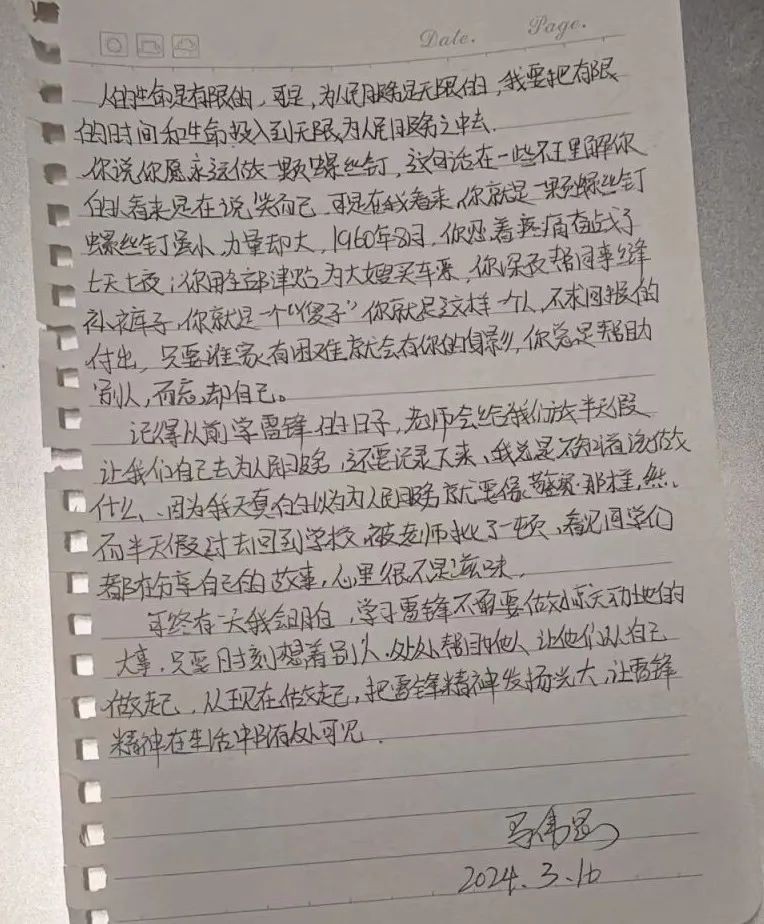 Date. Page.
人的生命是有限的，可是，为人民服务是无限的，我要把有限
的时间和生命投入到无限为人民服务之中去.
你说你愿永远做一颗螺丝钉，这句话在一些不理解你
的人看来是在说笑而已，可是在我看来，你就是一颗螺丝钉
螺丝钉虽小，力量却大，1960年8月，你忍着疼痛奋战了
七天七夜；你用全部津贴为大嫂买车票，你深夜帮同事缝
补裤子，你就是一个“傻子”你就是这样一个人，不求回报的
付出，只要谁家有困难就会有你的身影，你总是帮助
别人，而忘却自己。
记得从前学雷锋的日子，老师会给我们放半天假
让我们自己去为人民服务，还要记录下来、我总是不知道该做
什么、因为我天真的以为为人民服务就要像警察那样，然
而半天假过去回到学校，被老师批了一顿，看见同学们
都在分享自己的故事，心里很不是滋味.
可终有一天我会明白，学习雷锋不需要做惊天动地的
大事，只要时刻想着别人、处处帮助他人、让他们从自己
做起，从现在做起，把雷锋精神发扬光大，让雷锋
精神在生活中随处可见.
2024.3.16